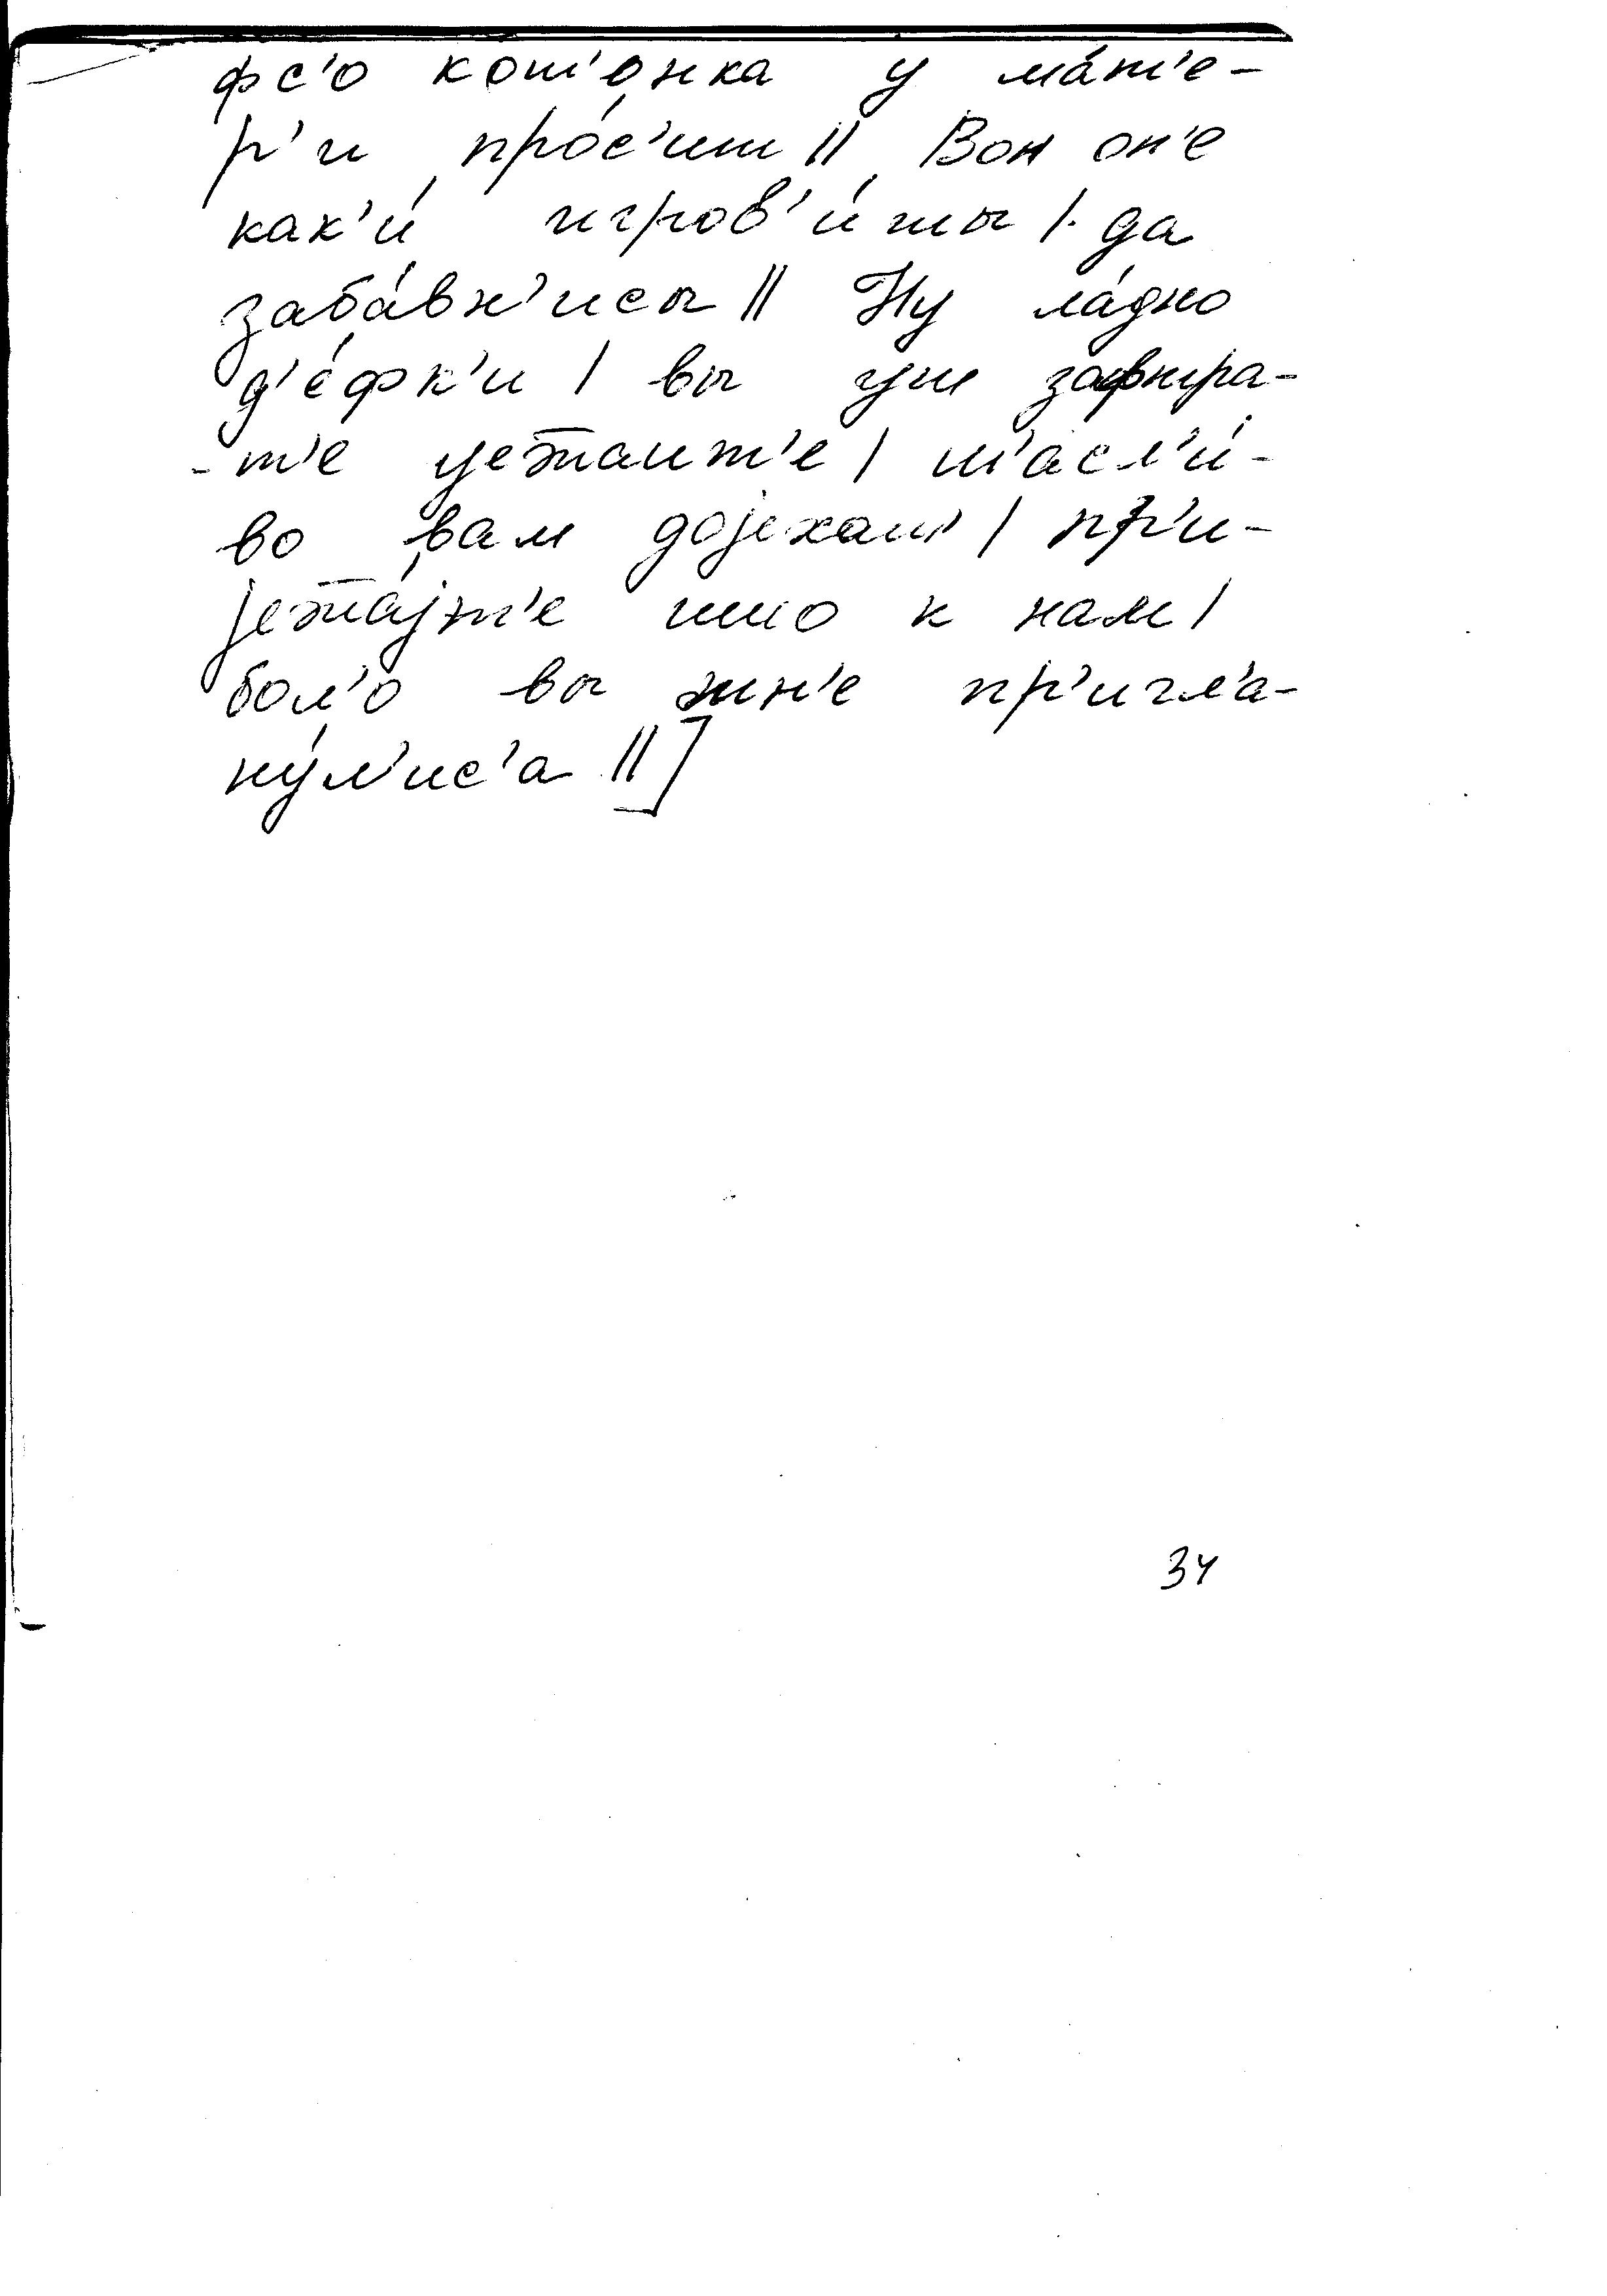 фс'о кот'о́нка у ма́т'е-
р'и про́с'ит || Вон он'е
как'и́ игров'и́ты | да
заба́вн'исы || Ну ла́дно
д'е́фк'и | вы уш зафтра-
-т'е уежаит'е | ш'асл'и́-
во вам дојехат' | пр'и-
јежа́јт'е ишо к нам |
бол'о вы мн'е пр'игл'а-
ну́л'ис'а || ]
34